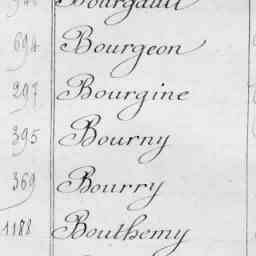 Bourgault
694 Bourgeon
297 Bourgine
395 Bourny
369 Bourry
1188 Bouthemy